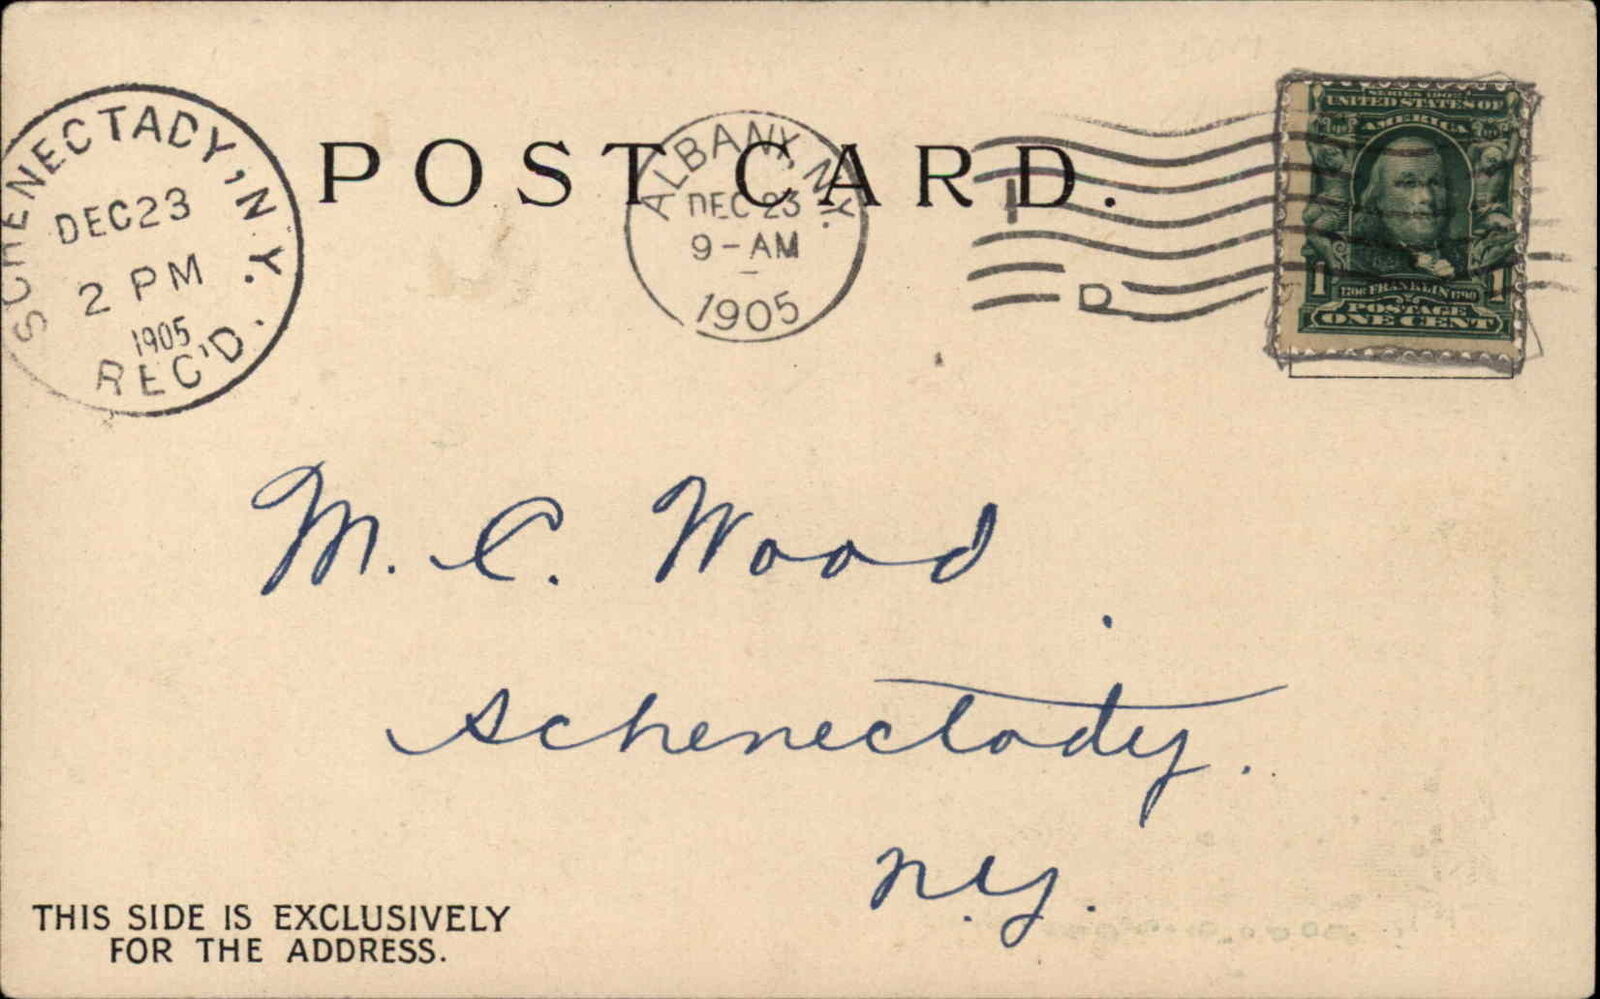 SCHENECTADY, N.Y.
DEC 23
2 PM
1905
REC'D.
POST CARD.
ALBANY, N.Y.
DEC 23
9-AM
1905
D
SERIES 1902
UNITED STATES OF
AMERICA
1 1706 FRANKLIN 1790 1
POSTAGE
ONE CENT
M. C. Wood
Schenectady.
N.Y.
THIS SIDE IS EXCLUSIVELY
FOR THE ADDRESS.